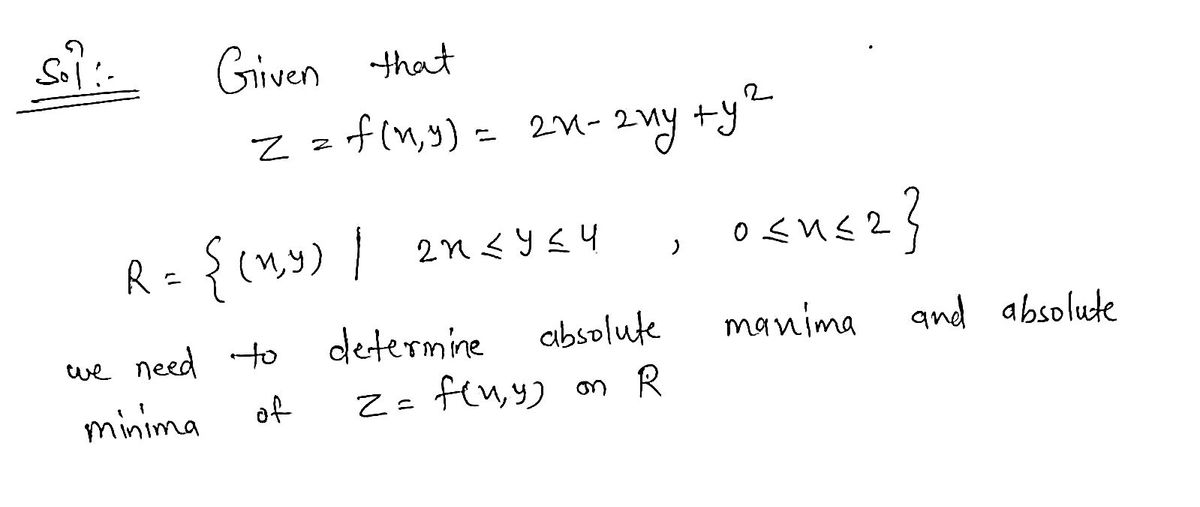 Solⁿ:- Given that
z = f(x,y) = 2x - 2xy + y²
R = {(x,y) | 2x ≤ y ≤ 4 , 0 ≤ x ≤ 2}
we need to determine absolute maxima and absolute
minima of z = f(x,y) on R